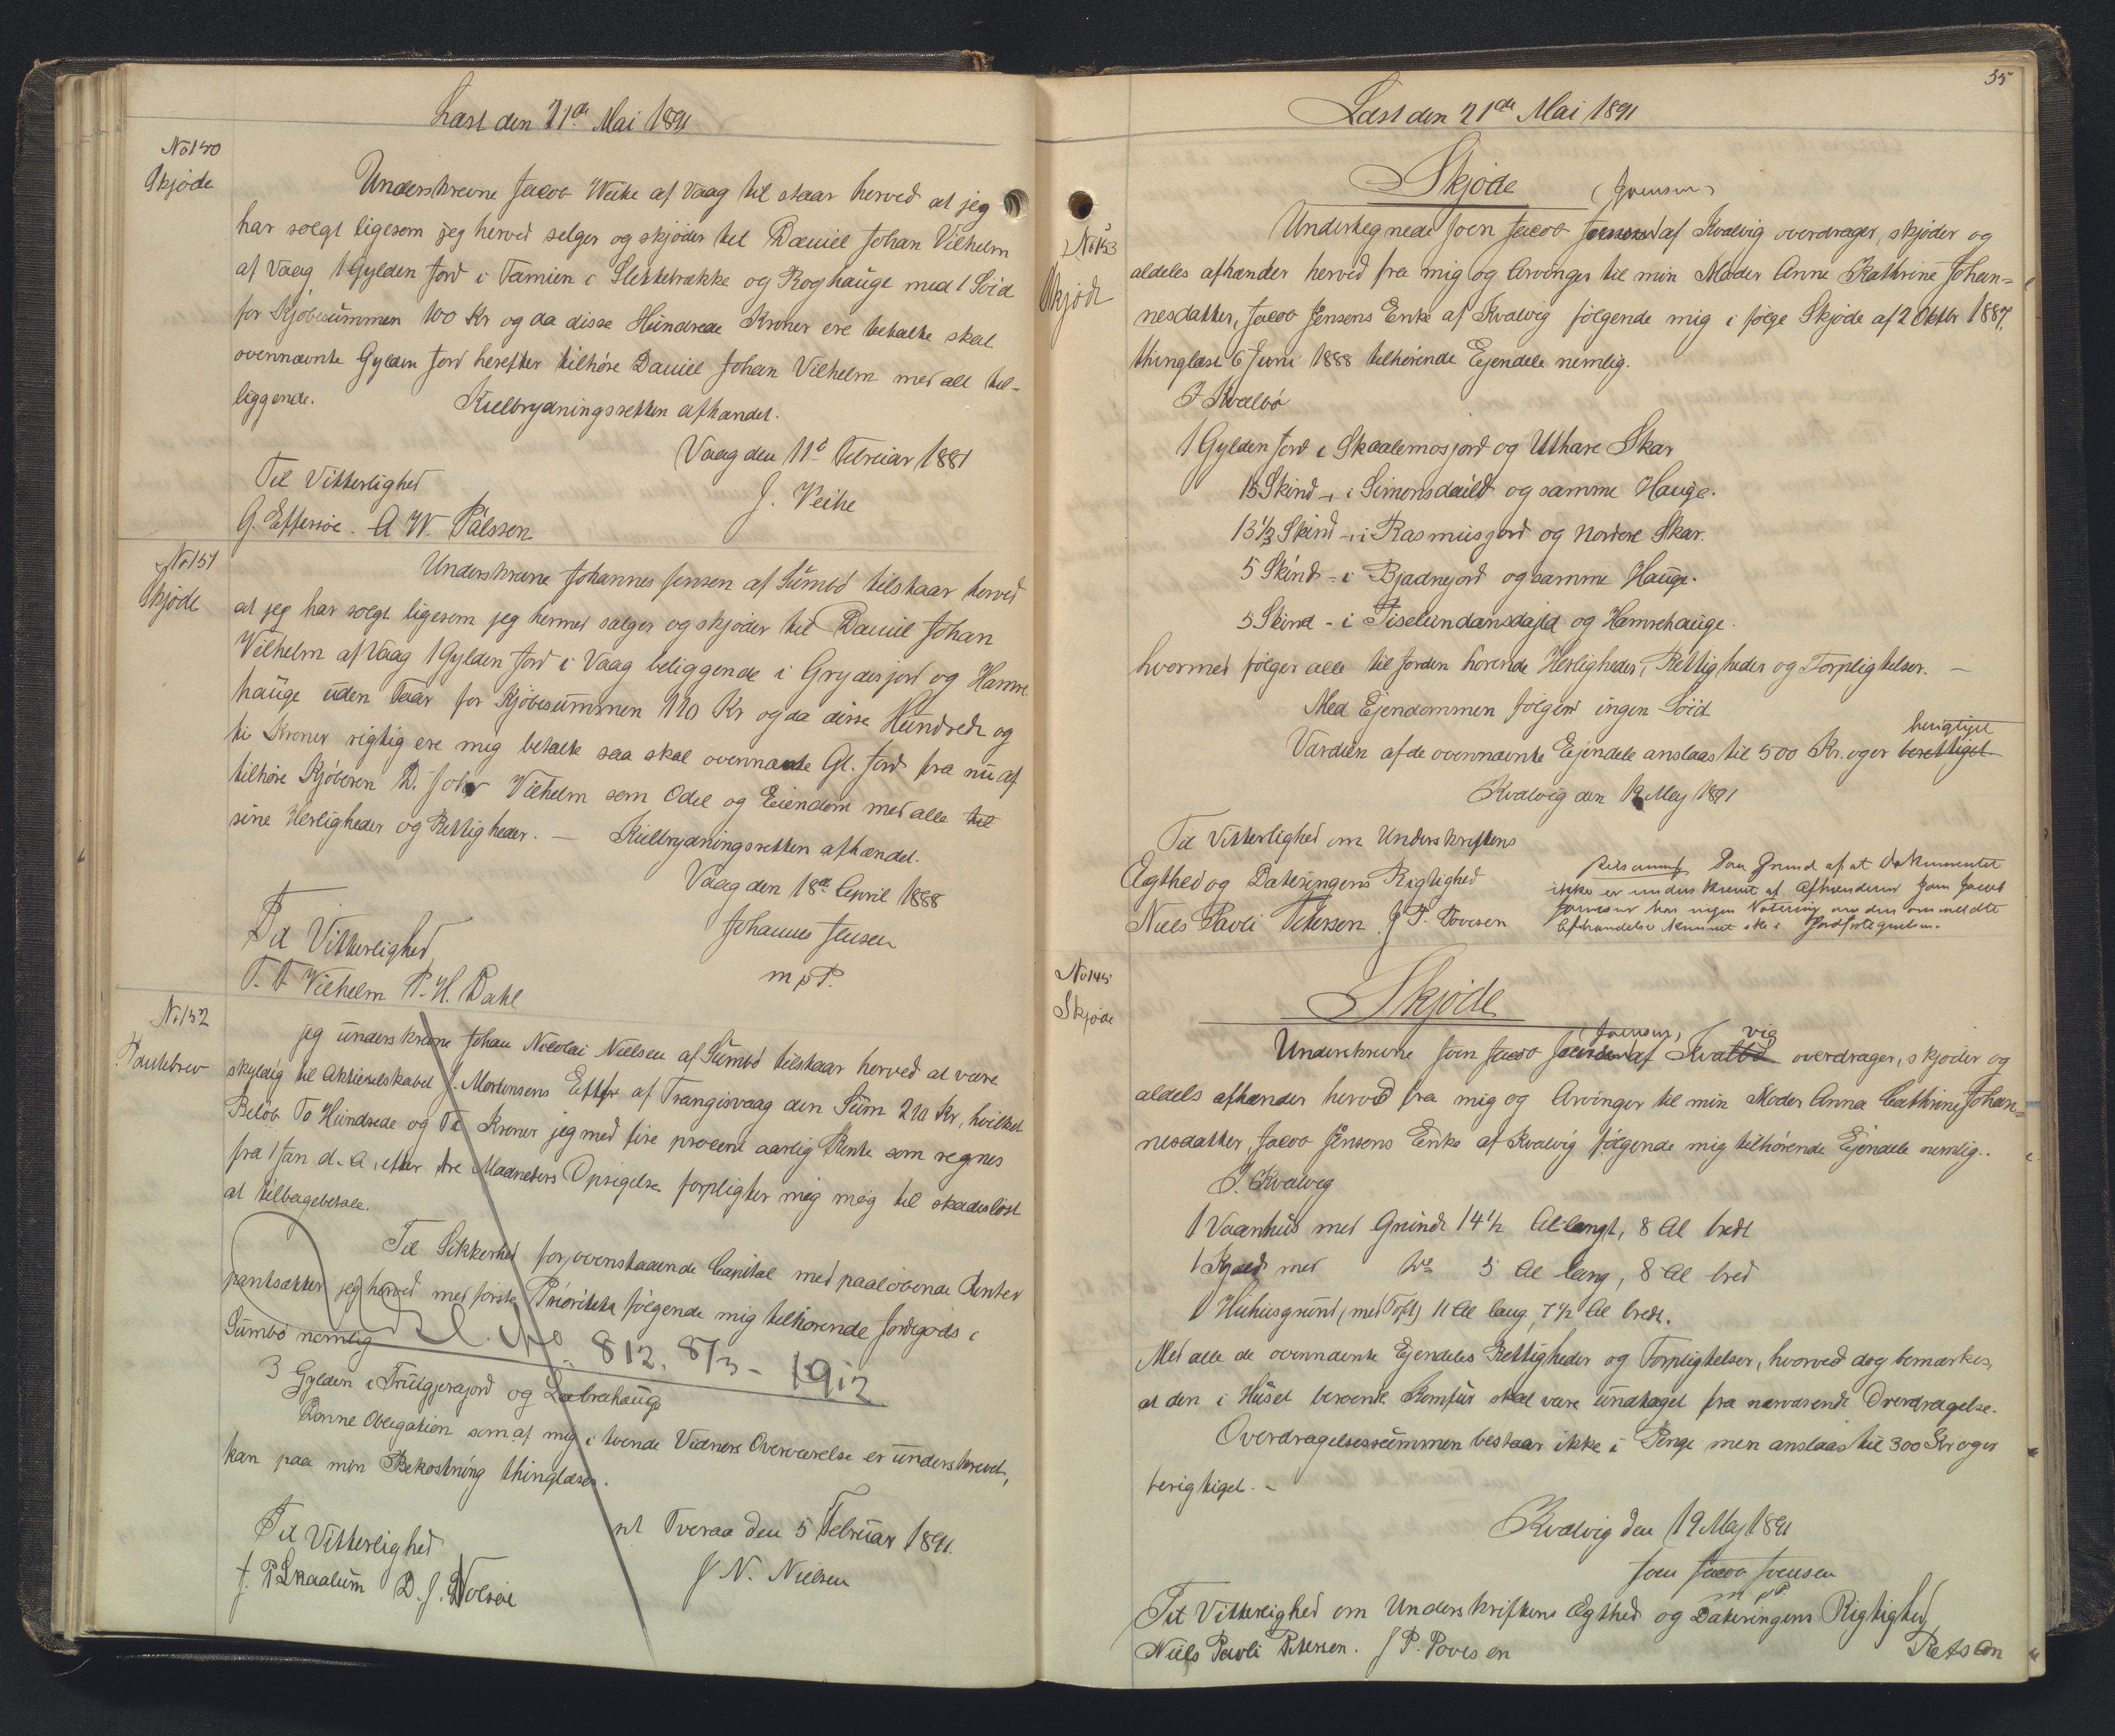 Læst den 21de Mai 1891
No 150
Skjøde
Underskrevne Jacob Weihe af Vaag til staar herved at jeg
har solgt ligesom jeg herved selger og skjøder til Daniel Johan Vilhelm
af Vaag 1 Gylden Jord i Tamien i Slettetrække og Roghauge med 1 Soid
for Kjøbesummen 100 Kr og da disse Hundrede Kroner ere betalte skal
ovennævnte Gylden Jord herefter tilhøre Daniel Johan Vilhelm med alt til-
liggende. Kuelbrydningsretten afhændet.
Vaag den 11te Februar 1881
Til Vitterlighed
J. Veihe
G. Effersøe. A W. Pálsson
No 151
Skjøde
Underskrevne Johannes Jensen af Sumbø tilstaar herved
at jeg har solgt ligesom jeg hermed sælger og skjøder til Daniel Johan
Vilhelm af Vaag 1 Gylden Jord i Vaag beliggende i Grydesjord og Hamre
hauge uden Faar for Kjøbesummen 110 Kr og da disse Hundrede og
ti Kroner rigtig ere mig betalte saa skal ovennævnte Gl. Jord fra nu af
tilhøre Kjøberen D. Johan Vilhelm som Odel og Eiendom med alle til
sine Herligheder og Rettigheder. — Kuelbrydningsretten afhændet.
Vaag den 18de April 1888
Johannes Jensen
m p P.
Til Vitterlighed
T. F Vilhelm P. H. Dahl
No 152
Pantebrev
jeg underskrevne Johan Nicolai Nielsen af Sumbø tilstaar herved at være
skyldig til Aktieselskabet J. Mortensens Eftfr af Trangisvaag den Sum 210 Kr, hvilket
Beløb To Hundrede og Ti Kroner jeg med fire procent aarlig Rente som regnes
fra 1 Jan d. A. efter tre Maaneders Opsigelse forpligter mig mig til skadesløst
at tilbagebetale.
Til Sikkerhed for ovenstaaende Capital med paaløbende Renter
pantsætter jeg herved med første Prioritets følgende mig tilhørende Jordegods i
Sumbø nemlig
812. 8/3 - 1912
3 Gylden i Trulgjerajord og Læbrehauge
Denne Obligation som af mig i tvende Vidners Overværelse er underskrevet,
kan paa min Bekostning thinglæses.
pt Tveraa den 5 Februar 1891.
Til Vitterlighed
J N. Nielsen
J. P Skaalum D. J. Nolsøe
55
Læst den 21de Mai 1891
Skjøde
(Joensen)
No 153
Skjøde
Undertegnede Joen Jacob Joensen af Kvalvig overdrager, skjøder og
aldeles afhænder herved fra mig og Arvinger til min Moder Anne Kathrine Johan-
nesdatter, Jacob Jensens Enke af Kvalvig følgende mig i følge Skjøde af 2 Oktbr 1887,
thinglæst 6 Juni 1888 tilhørende Ejendele nemlig.
I Kvalbø
1 Gylden Jord i Skaalemosjord og Uthare Skar
15 Skind - i Simonsdaild og samme Hauge.
13 1/3 Skind - i Rasmusjord og Nordere Skar.
5 Skind - i Bjadnejord og samme Hauge.
5 Skind - i Tiselundansdajld og Hamrehauge.
hvormed følger alle til Jorden hørende Herligheder, Rettigheder og Forpligtelser. —
Med Ejendommen følger ingen Soid
berigtiget
Værdien af de ovennævnte Ejendele anslaas til 500 Kr. og er berettiget
Kvalvig den 19 Maj 1891
Til Vitterlighed om Underskriftens
Ægthed og Dateringens Rigtighed
Niels Pauli Petersen J P. Povesen
Paa Grund af at Dokumentet
ikke er underskrevet af Afhænderen Joen Jacob
Joensen har ingen Notering om den ommeldte
Afhændelse kunnet ske i Jordfortegnelsen.
No 145
Skjøde
Skjøde
(Joensen) vig
Underskrevne Joen Jacob Joensen af Kvalbø overdrager, skjøder og
aldels afhænder herved fra mig og Arvinger til min Moder Anna Cathrine Johan-
nesdatter, Jacob Jensens Enke af Kvalvig følgende mig tilhørende Ejendele nemlig..
I. Kvalvig
1 Vaanhus med Grund 14 1/2 Al langt, 8 Al bredt
1 Kjæld med do 5 Al lang, 8 Al bred
1 Huhusgrund (med Toft) 11 Al lang, 7 1/2 Al bredt.
Med alle de ovennævnte Ejendeles Rettigheder og Forpligtelser, hvorved dog bemærkes,
at den i Huset beroende Komfur skal være undtaget fra nærværende Overdragelse.
Overdragelsessummen bestaar ikke i Penge men anslaas til 300 Kr og er
berigtiget. -
Kvalvig den 19 Maj 1891
Joen Jacob Joensen
m p P.
Til Vitterlighed om Underskriftens Ægthed og Dateringens Rigtighed
Niels Pauli Petersen. J P. Povesen